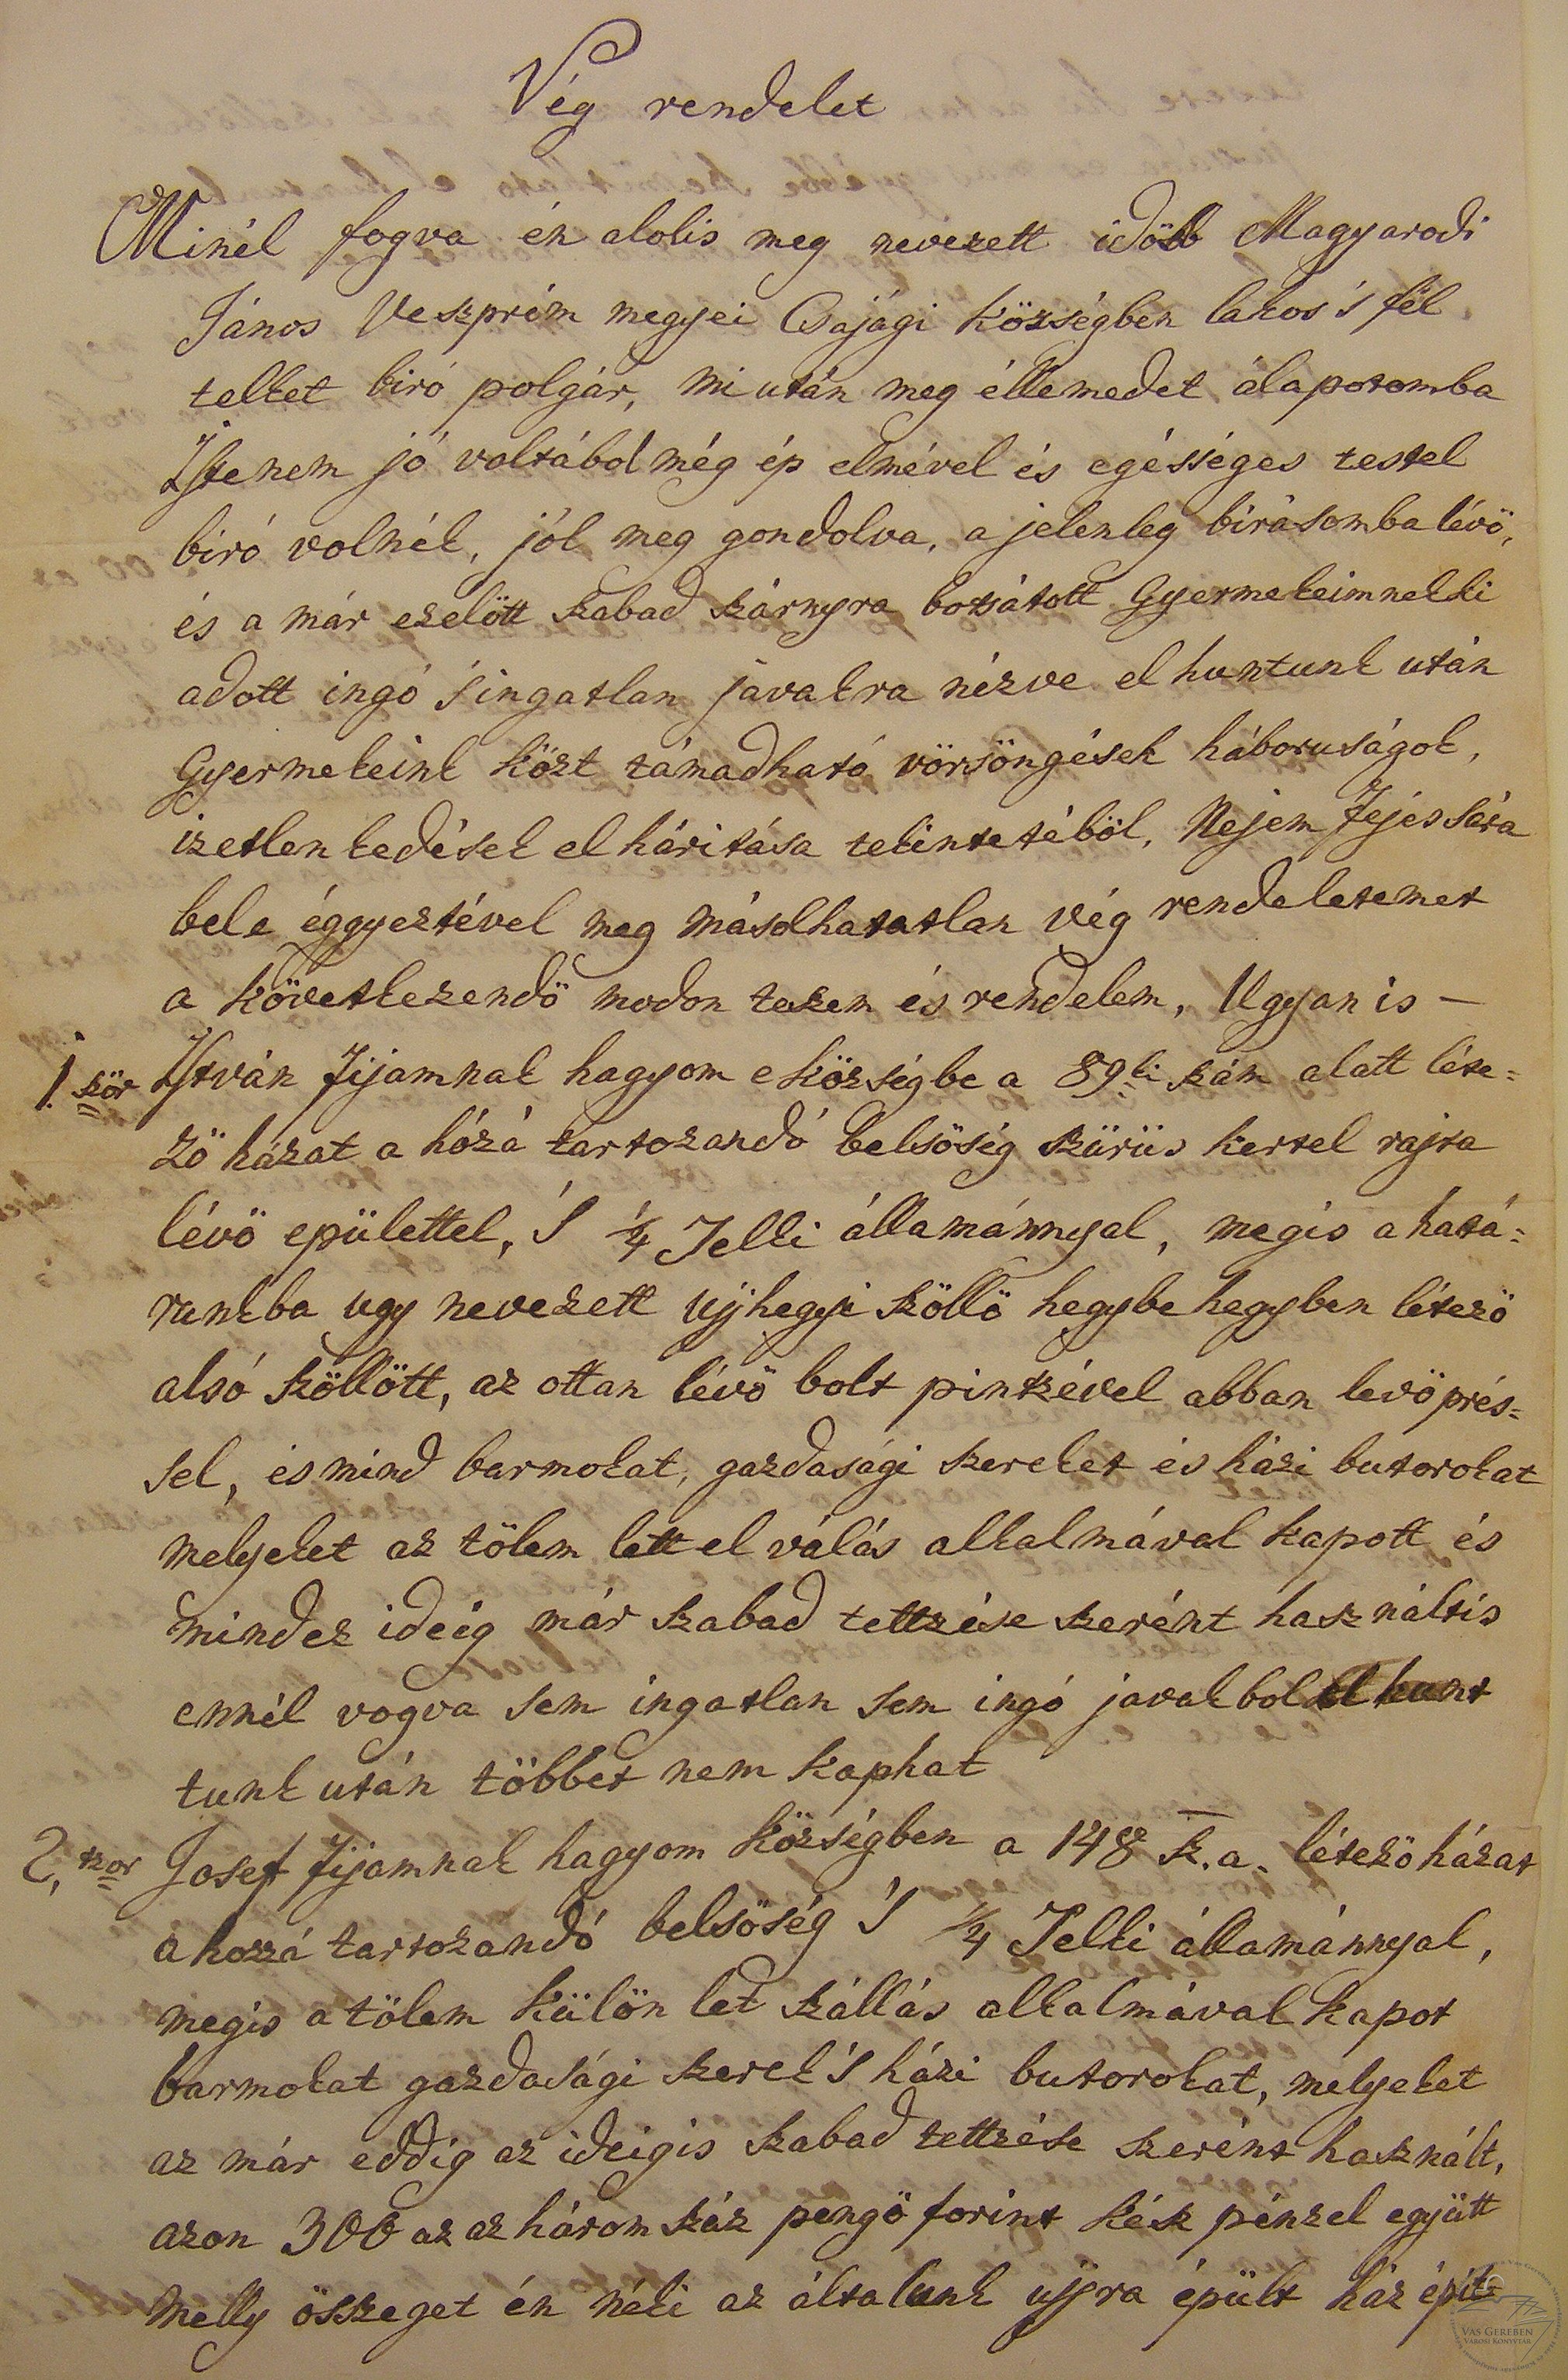 Vég rendelet
Minél fogva én alolis meg nevezett idöbb Magyarodi
János Veszprém megyei Csajági községben lakos 's fél
telket biró polgár, miután meg éllemedet álapotomba
Istenem jó voltából még ép elmével és egésséges testel
biró volnék, jól meg gondolva, a jelenleg birásomba lévö,
és a már ezelött szabad szárnyra botsátott Gyermekeimnek ki
adott ingó 's ingatlan javakra nézve el huntunk után
Gyermekeink közt támadható vörsöngések háboruságok,
izetlenkedések el háritása tekintetéböl, Nejem Fejes Sára
bele éggyeztével meg másolhatatlan vég rendeletemet
a következendö modon teszem és rendelem, Ugyan is —
1. ször István fijamnak hagyom e községbe a 89ki szám alatt léte=
zö házat a hózá tartozandó belsöség szürüs kertel rajta
lévö epülettel, 's 1/4 Telki államánnyal, megis a hatá=
runkba ugy nevezett Ujhegyi szöllö hegybe hegyben létezö
alsó szöllött, az ottan lévö bolt pintzével abban levö prés=
sel, és mind barmokat, gazdasági szereket és házi butorokat
melyeket az tölem lett el válás alkalmával kapott és
mindez ideig már szabad tettzése szerént használtis
ennél vogva sem ingatlan sem ingó javakbol el hunt
tunk után többet nem kaphat
2, szor Josef fijamnak hagyom községben a 148 sz. a. létezö házat
a hozzá tartozandó belsöség 's 1/4 Telki államánnyal,
megis a tölem külön let szállás alkalmával kapot
barmokat gazdasági szerek 's házi butorokat, melyeket
az már eddig az ideigis szabad tettzése szerént használt,
azon 300 az az három száz pengö forint kész pénzel együtt
melly összeget én néki az általunk ujra épült ház épit=
VAS GEREBEN
VÁROSI KÖNYVTÁR